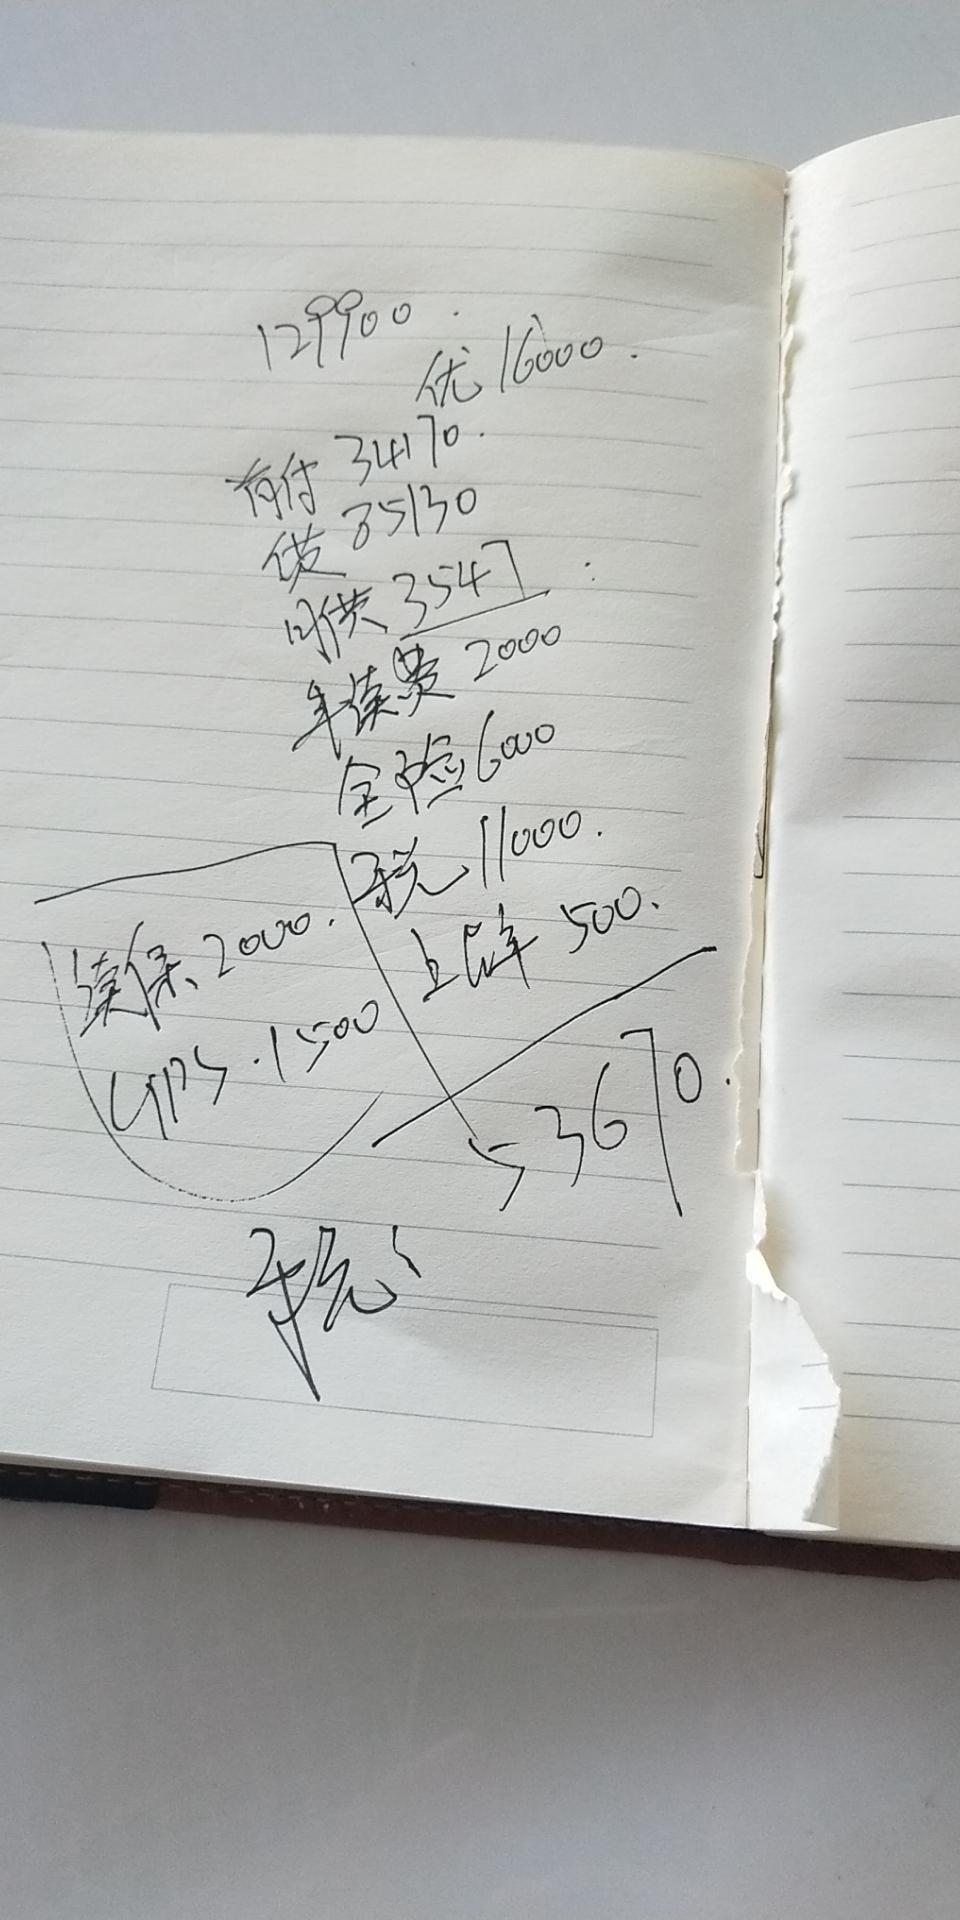 129900.
优16000.
首付 34170.
贷 85130
月供 3547
手续费 2000
全险 6000
税 11000.
上牌 500.
续保 2000.
GPS.1500
53670.